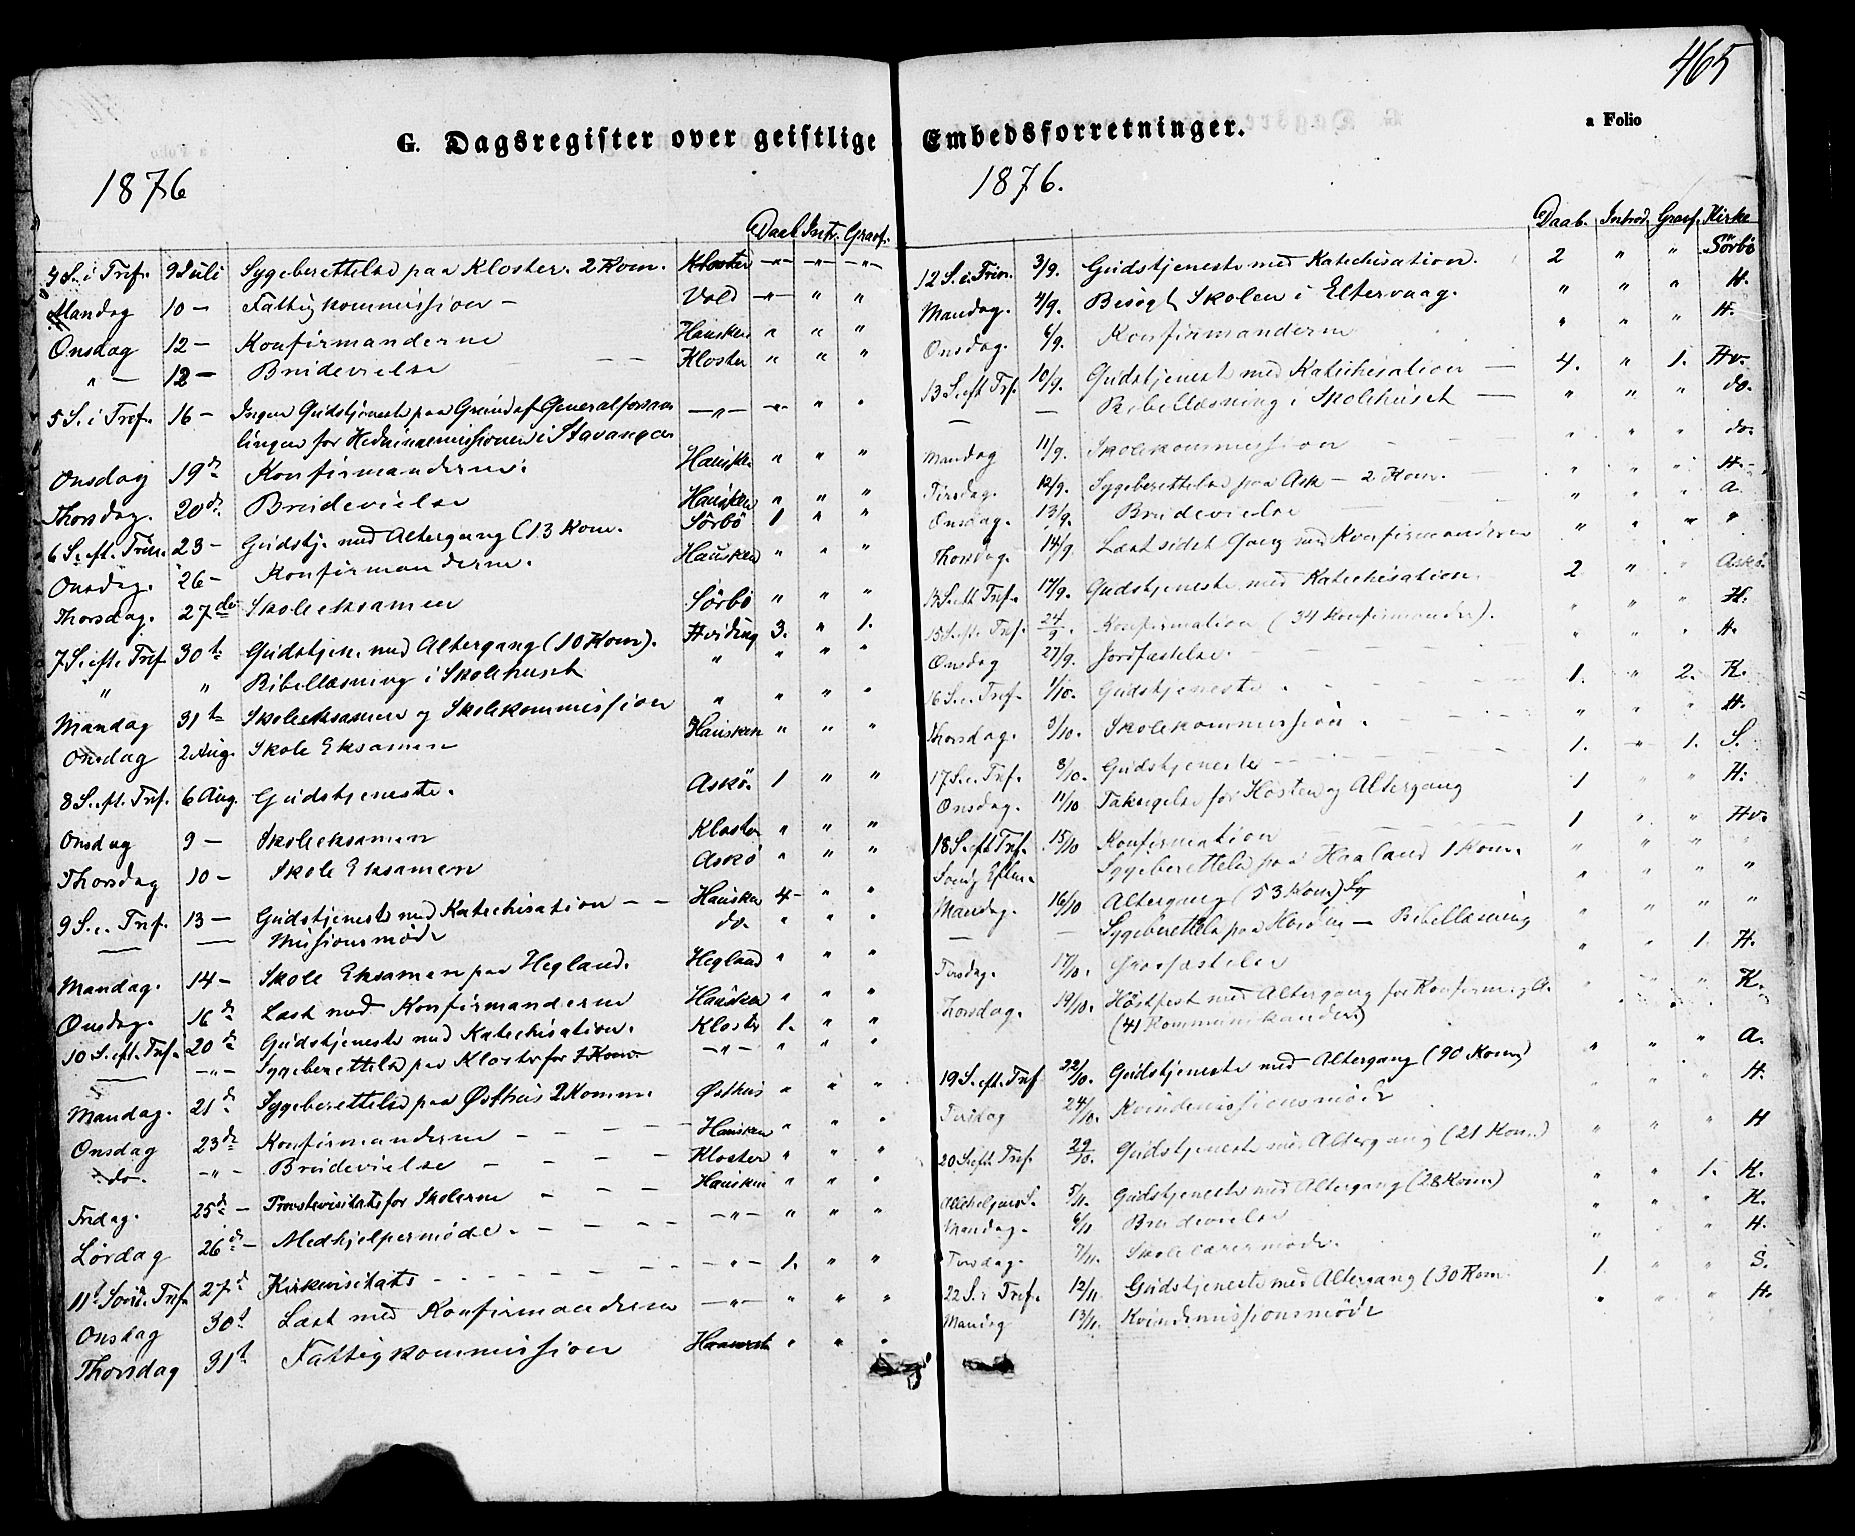 465
G. Dagsregister over geistlige Embedsforretninger.
a Folio
1876
Daab Intr. Grav.
4 S. i Tref. 9 Juli Sygeberettelse paa Kloster. 2 Kom. Kloster -"- -"- -"-
Mandag 10 - Fattigkommission - Vold -"- " "
Onsdag 12 - Konfirmanderne Hausken " " "
" - 12 - Brudevielse - - Kloster " " "
5 S. i Tref. 16 - Ingen Gudstjeneste paa Grund af Generalforsam -"- -"- " "
lingen for Hedningemissionen i Stavanger
Onsdag 19de Konfirmanderne. Hausken " " "
Thorsdag. 20de Brudevielse Hausken " " "
6 S. eft. Trin. 23 - Gudstj. med Altergang (13 Kom. Sörbö 1 " "
Onsdag. 26 - Konfirmanderne. Hausken " " "
Thorsdag. 27de Skoleeksamen Sörbö " " "
7 S. eft. Tref. 30t Gudstjen. med Altergang (10 Kom). Hviding 3. " 1.
" " Bibellæsning i Skolehuset " " " "
Mandag 31t Skoleeksamen og Skolekommission " " " "
Onsdag 2 Aug. Skole Eksamen Hausken " " "
8 S. eft. Tref. 6 Aug. Gudstjeneste. Askö. 1 " "
Onsdag 9 - Skoleeksamen Kloster " " "
Thorsdag 10 - Skole Eksamen Askö " " "
9 S. e. Tref. 13 - Gudstjeneste med Katechisation - - Hausken 4 - " "
— — Missionsmöde do. " " "
Mandag. 14 - Skole Eksamen paa Hegland. Hegland " " "
Onsdag. 16de Læst med Konfirmanderne Hausken " " "
10 S. eft. Tref. 20de Gudstjeneste med Katechisation. Kloster 1. " "
— -"- Sygeberettelse paa Kloster for 1 Kom. -"- " " "
Mandag. 21de Sygeberettelse paa Østhus 2 Komm. Østhus " " "
Onsdag 23de Konfirmanderne - - - - Hausken " " "
do. -"- Brudevielse - - - - Kloster " " "
Fredag. 25de - Provstevisitats for Skolerne - - - Hausken " " "
Lördag 26de - Medhjelpermöde. - - - - -"- " " "
11t Sönd. Tref. 27d Kirkevisitats - - - - - -"- 1. " "
Onsdag 30t Læst med Konfirmanderne -"- " " "
Thorsdag 31t Fattigkommission " " "
1876.
Daab. Introd. Grav. Kirke
12 S. i Trin. 3/9. Gudstjeneste med Katechisation. 2 " " Sörbö
Mandag. 4/9. Besögt Skolen i Eltervaag. " " " H.
Onsdag. 6/9. Konfirmanderne " " " H.
13 S. eft Tref. 10/9. Gudstjeneste med Katechisation - 4. " 1. Hv.
— Bibellæsning i Skolehuset - " " " do.
Mandag 11/9. Skolekommission " " " do.
Tirsdag. 12/9. Sygeberettelse paa Ask - 2 Kom. " " " H.
Onsdag. 13/9. Brudevielse " " " A.
Thorsdag. 14/9. Læst sidste Gang med Konfirmanderne " " " "
17/9. Gudstjeneste med Katechisation. 2 " " Askö.
15 S. eft. Tref. 24/9. Konfirmation (34 Konfirmander). " " " H.
Onsdag 27/9. Jordfæstelse. " " " H.
16 S. e. Tref. 1/10. Gudstjeneste. 1. " 2. K.
Thorsdag. Skolekommission. " " " H.
17 S. e. Tref. 8/10. Gudstjeneste - - - 1. " 1. S.
Onsdag. 11/10 Taksigelse for Hösten og Altergang 1 " " H.
18 S. eft Tref. 15/10 Konfirmation 1 " " Hv.
Sönd. Efterm. Sygeberettelse paa Haaland 1 Kom. " " " "
Mandag. 16/10 Altergang (53 Kom) " " " "
— — Sygeberettelse paa - Bibellæsning " " " "
Tirsdag. 17/10. Jordfæstelse " " 1. H.
Thorsdag. 19/10. Höstfest med Altergang for Konfirm. K.
(41 Kommunikanter)
19 S. eft. Tref 22/10. Gudstjeneste med Altergang (90 Kom) " " " A.
Tirsdag 24/10. Kvindemissionsmöde " " " H.
20 S. eft. Tref. 29/10. Gudstjeneste med Altergang (21 Kom.) " " " H
Allehelgens S. 5/11. Gudstjeneste med Altergang (28 Kom) " " 1. K.
Mandag. 6/11 Brudevielse " " " K.
Tirsdag. 7/11. Skolelærermöde. " " " H.
22 S. i Tref. 12/11. Gudstjeneste med Altergang (30 Kom. 1. " " S.
Mandag 13/11. Kvindemissionsmöde " " " H.